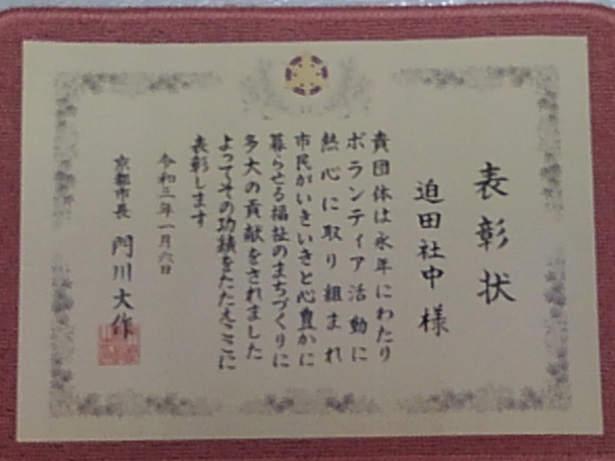 表彰状
迫田社中様
貴団体は永年にわたり
ボランティア活動に
熱心に取り組まれ
市民がいきいきと心豊かに
暮らせる福祉のまちづくりに
多大の貢献をされました
よってその功績をたたえここに
表彰します
令和三年一月六日
京都市長 門川大作